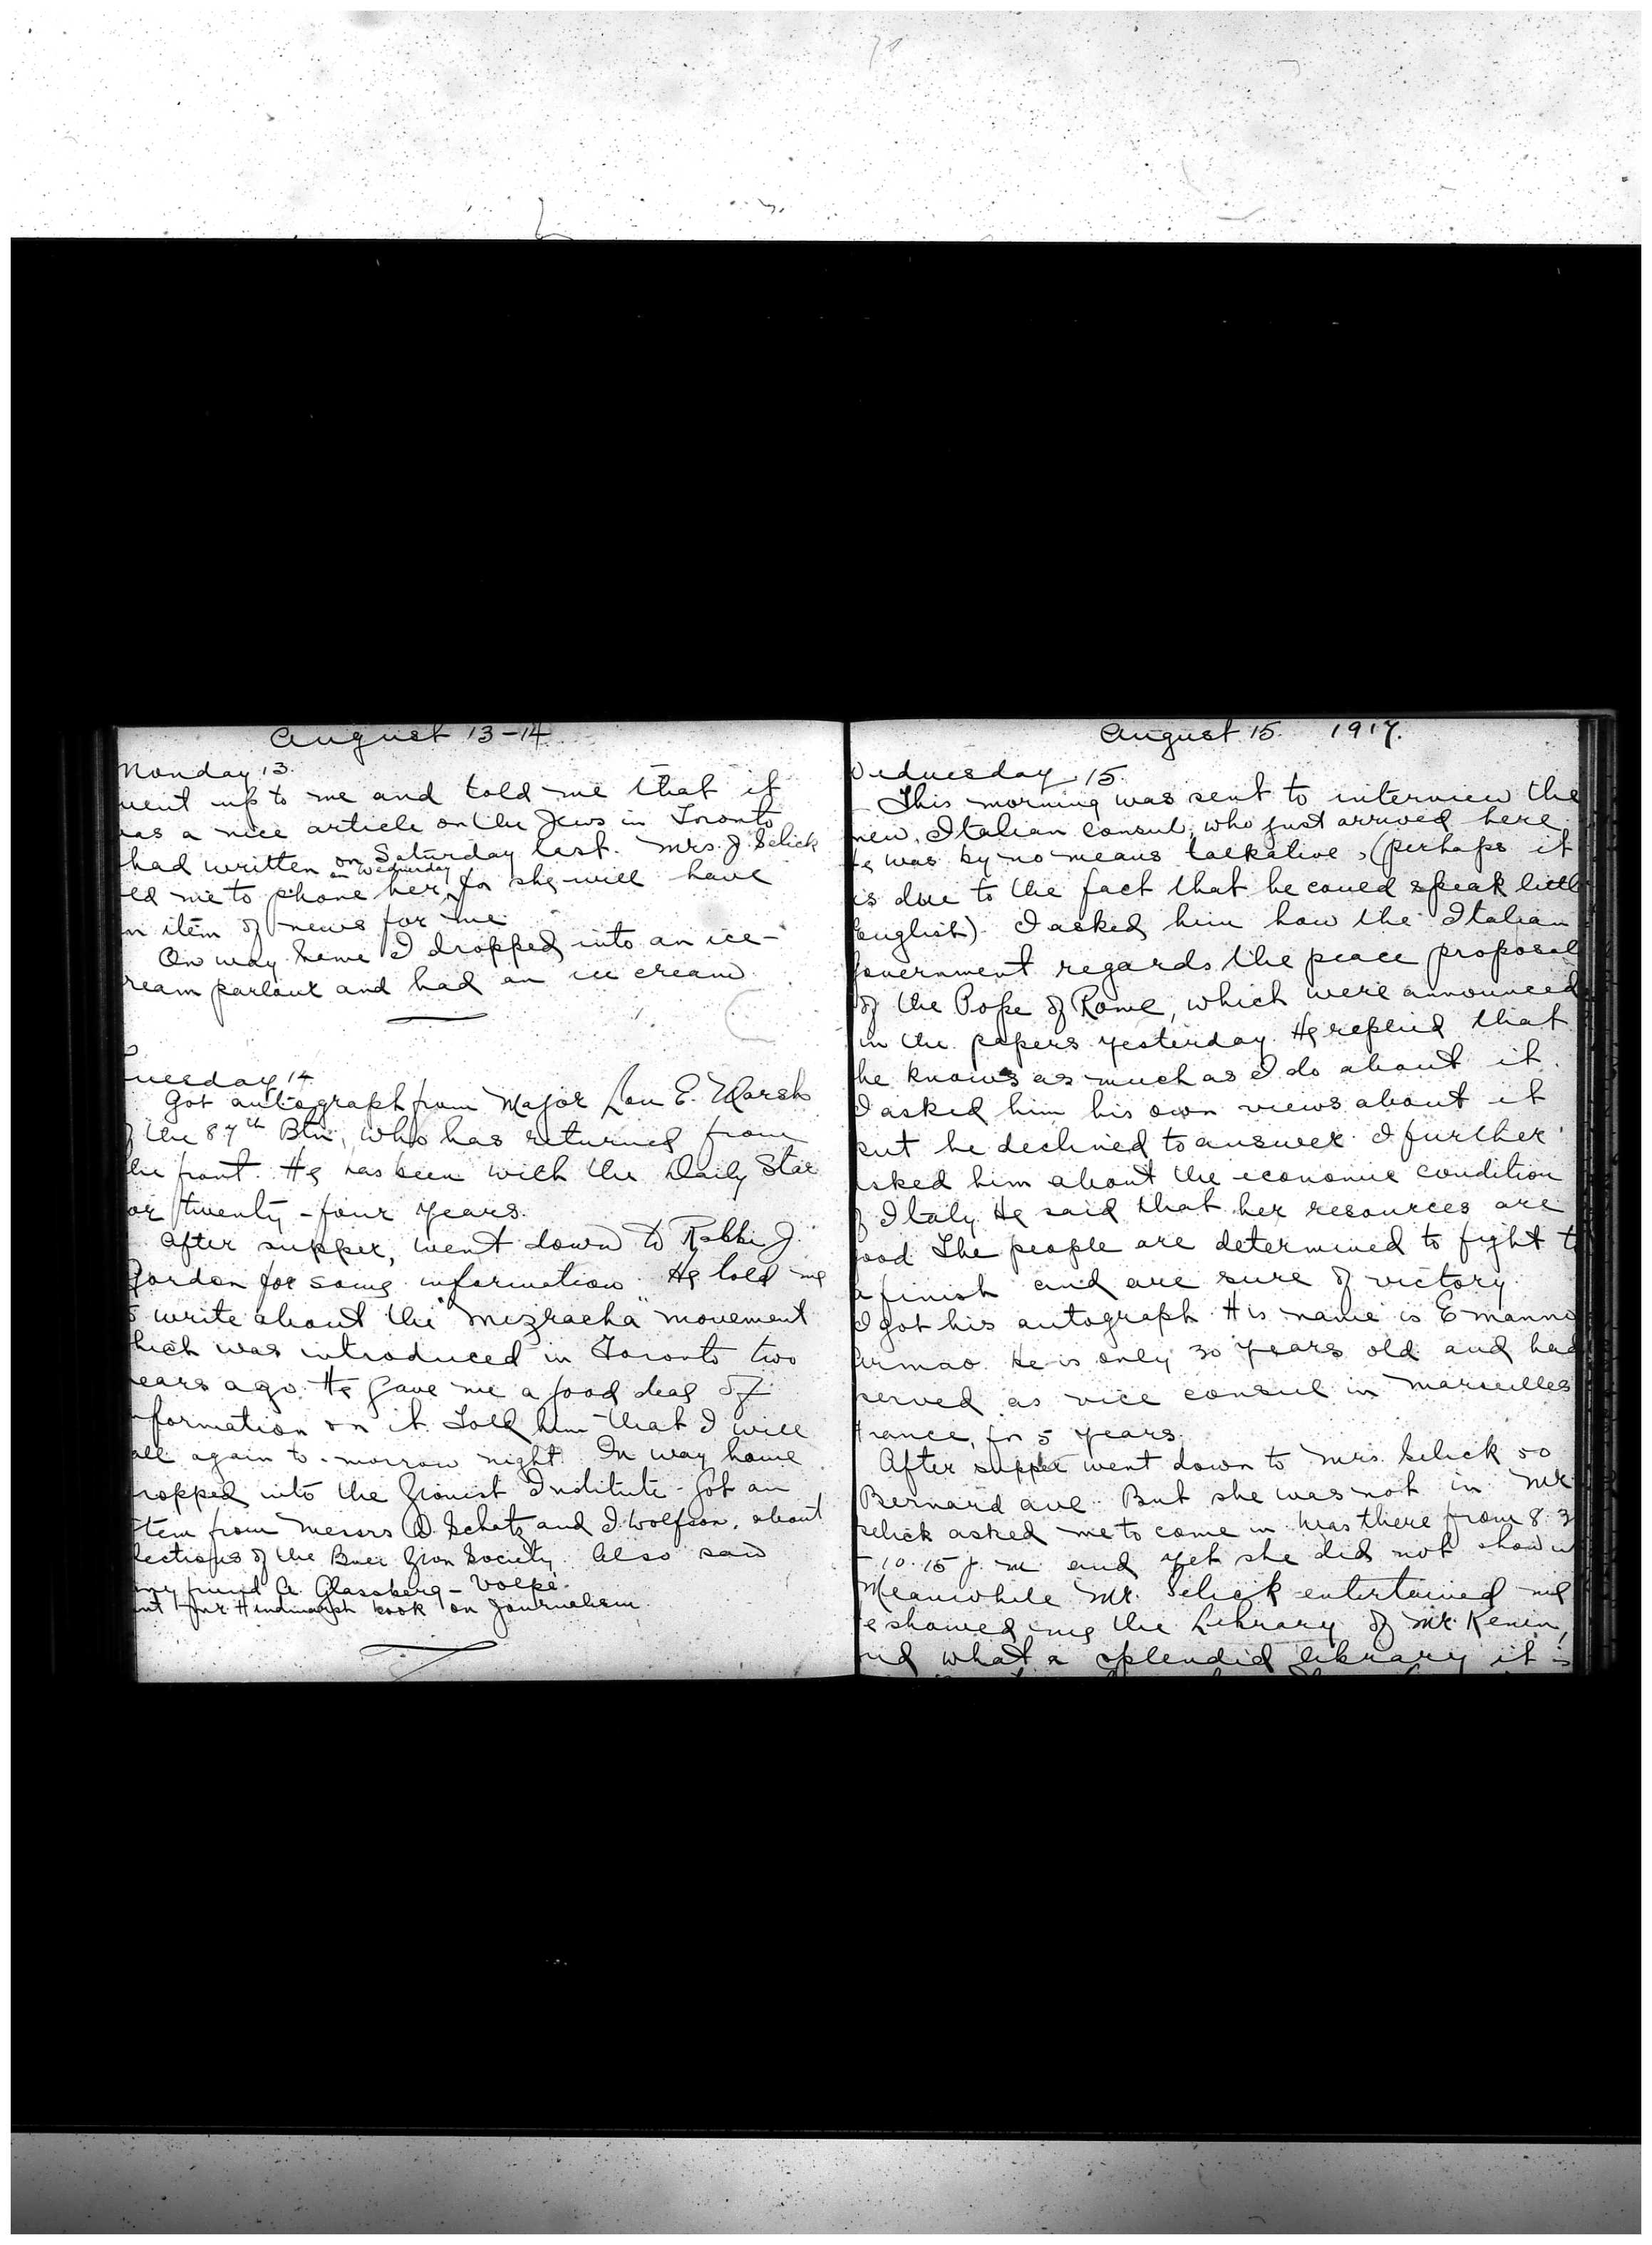 August 13-14
Monday 13.
went up to me and told me that it
was a nice article on the Jews in Toronto
had written on Saturday last. Mrs. J. Selick
on Wednesday
ed me to phone her, for she will have
n item of news for me
On way home I dropped into an ice-
ream parlour and had an ice cream
Tuesday 14
Got autograph from Major Lou E. Marsh
of the 87th Btn, who has returned from
the front. He has been with the Daily Star
for twenty-four years.
After supper, went down to Rabbi J.
Gordon for some information. He told me
to write about the "Mizracha" movement
hich was introduced in Toronto two
ears ago. He gave me a good deal of
nformation on it. Told him that I will
all again to-morrow night. In way home
ropped into the Zionist Institute. Got an
item from Messrs D. Schatz and I. Wolfson, about
lections of the Bnei Zion Society. Also saw
my friend A. Glassberg - Volpe.
nt Mr Hindmarsh book on Journalism.
August 15 1917.
Wednesday 15.
This morning was sent to interview the
new Italian consul, who just arrived here
He was by no means talkative, (perhaps it
is due to the fact that he could speak little
English). I asked him how the Italian
Government regards the peace proposal
of the Pope of Rome, which were announced
in the papers yesterday. He replied that
he knows as much as I do about it.
I asked him his own views about it
but he declined to answer. I further
asked him about the economic condition
of Italy. He said that her resources are
good. The people are determined to fight to
a finish and are sure of victory.
I got his autograph. His name is Emanno
Armao. He is only 30 years old and had
served as vice consul in Marseilles
France, for 5 years.
After supper went down to Mrs. Selick 50
Bernard ave. But she was not in. Mr
Selick asked me to come in. Was there from 8.3
- 10.15 p.m. and yet she did not show u
Meanwhile Mr. Selick entertained me
e showed me the Library of Mr. Kenen,
nd what a splendid library it is